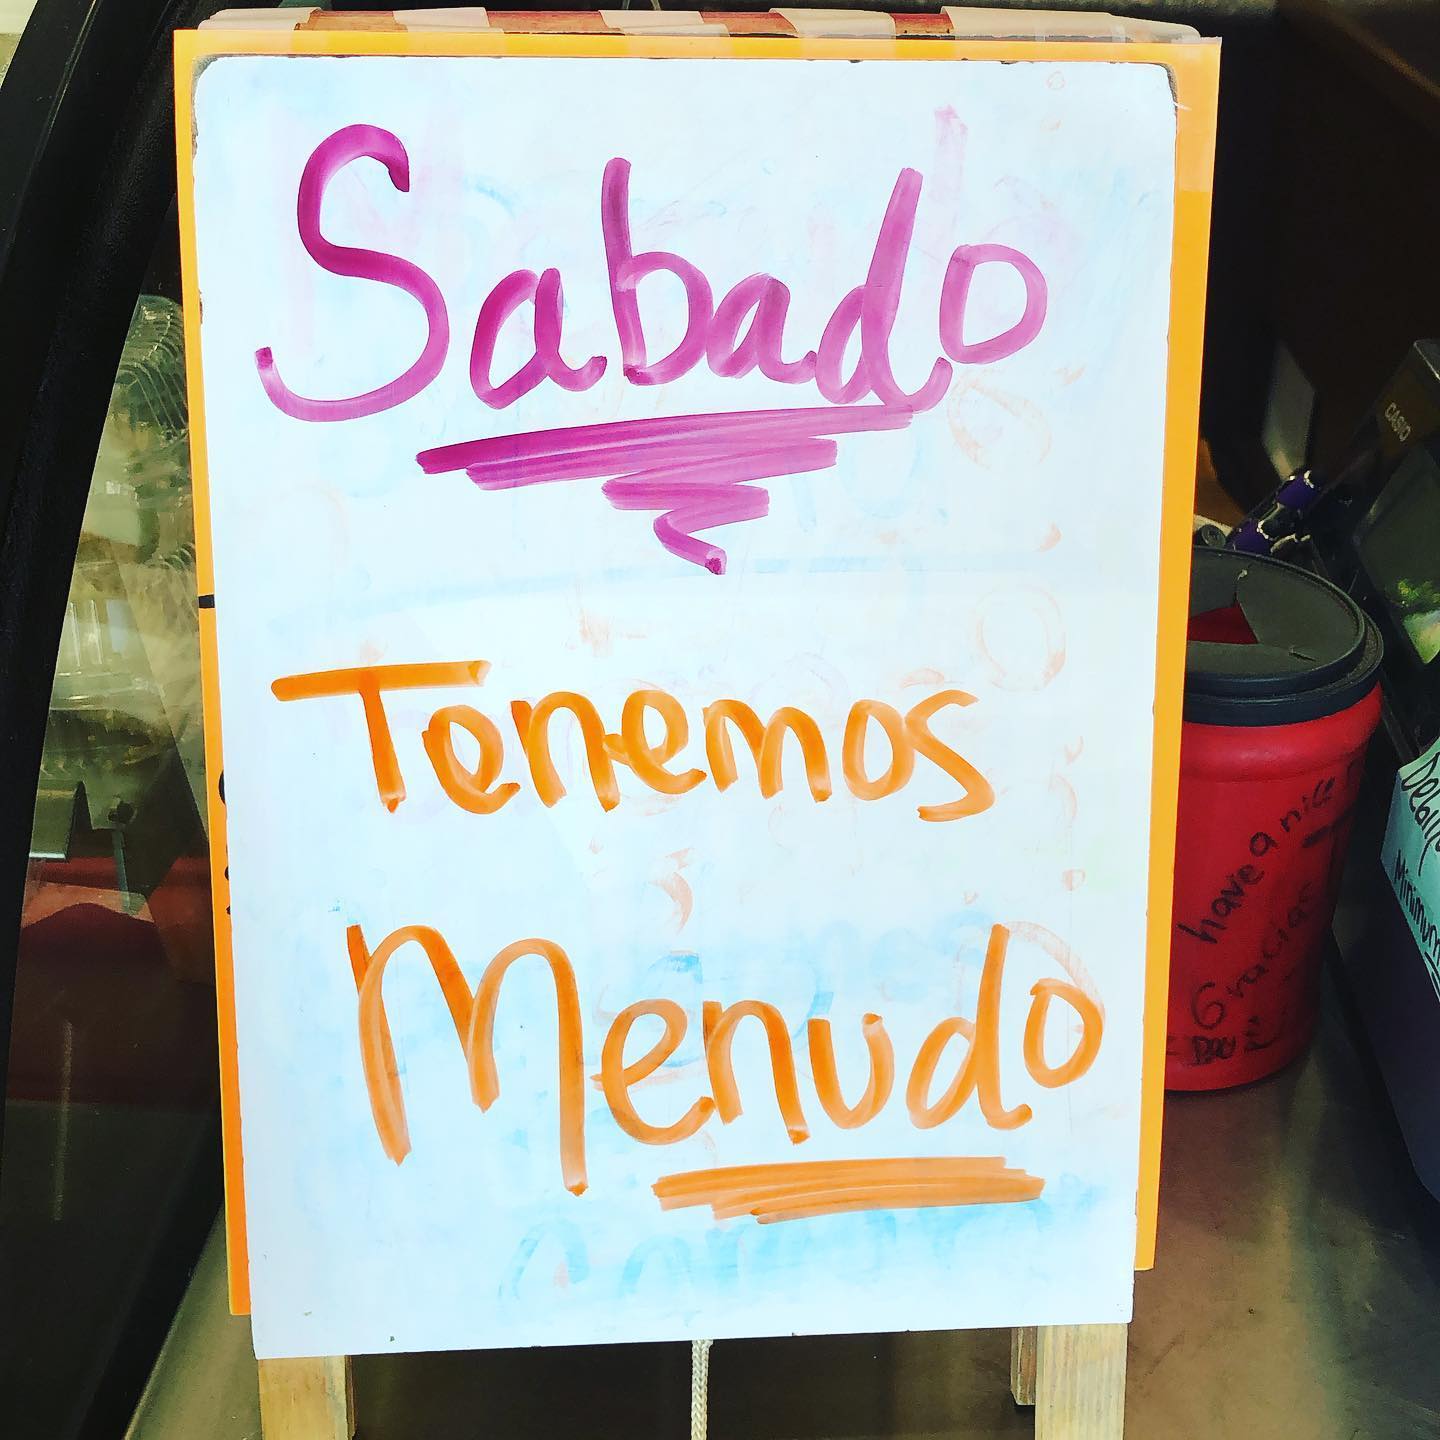 Sabado
Tenemos
Menudo
CASIO
have a nice
Gracias
Minimum